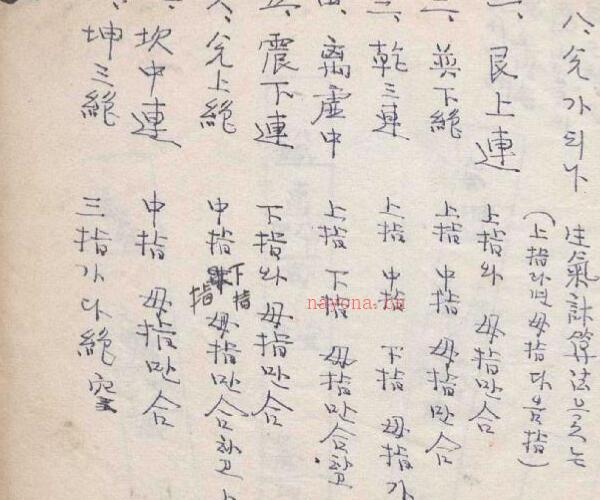 八、兌가되나
生氣計算法을 는
(上指라면 母指 다음指)
一、艮上連 上指와 母指만 合
二、巽下絶 上指 中指 母指만 合
三、乾三連 上指 中指 下指 母指가
離虛中 上指 下指 母指만 合할
震下連 下指와 母指만 合
兌上絶 中指 下指 母指만 合하고
坎中連 中指 母指만 合
坤三絶 三指가 다 絶
nayona.cn